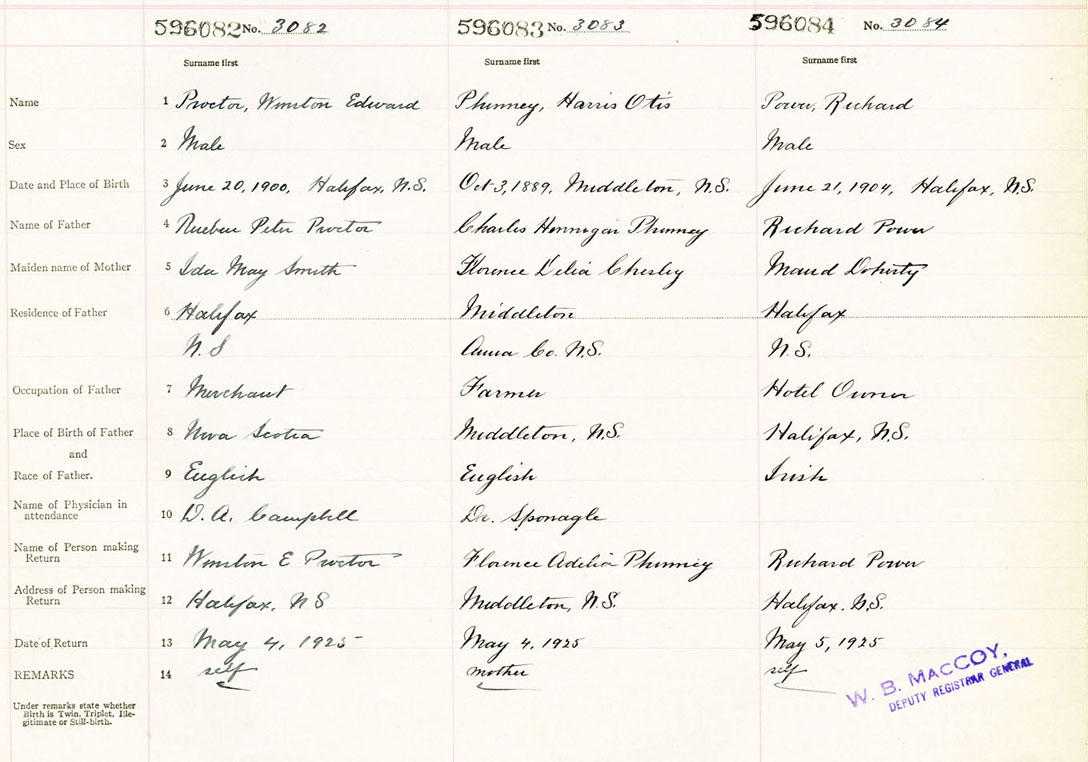 596082 No. 3082 596083 No. 3083 596084 No. 3084
Surname first Surname first Surname first
Name 1 Proctor, Winston Edward Phinney, Harris Otis Power, Richard
Sex 2 Male Male Male
Date and Place of Birth 3 June 20, 1900, Halifax, N.S. Oct 3, 1889, Middleton, N.S. June 21, 1904, Halifax, N.S.
Name of Father 4 Rueben Peter Proctor Charles Hennigar Phinney Richard Power
Maiden name of Mother 5 Ida May Smith Florence Delia Chesley Maud Doherty
Residence of Father 6 Halifax Middleton Halifax
N.S Anna Co. N.S. N.S.
Occupation of Father 7 Merchant Farmer Hotel Owner
Place of Birth of Father 8 Nova Scotia Middleton, N.S. Halifax, N.S.
and
Race of Father. 9 English English Irish
Name of Physician in
attendance 10 D. A. Campbell Dr. Sponagle
Name of Person making
Return 11 Winston E Proctor Florence Adelia Phinney Richard Power
Address of Person making
Return 12 Halifax, NS Middleton, N.S. Halifax. N.S.
Date of Return 13 May 4, 1925 May 4, 1925 May 5, 1925
REMARKS 14 self mother self
W. B. MACCOY,
DEPUTY REGISTRAR GENERAL
Under remarks state whether
Birth is Twin, Triplet, Ille-
gitimate or Still-birth.